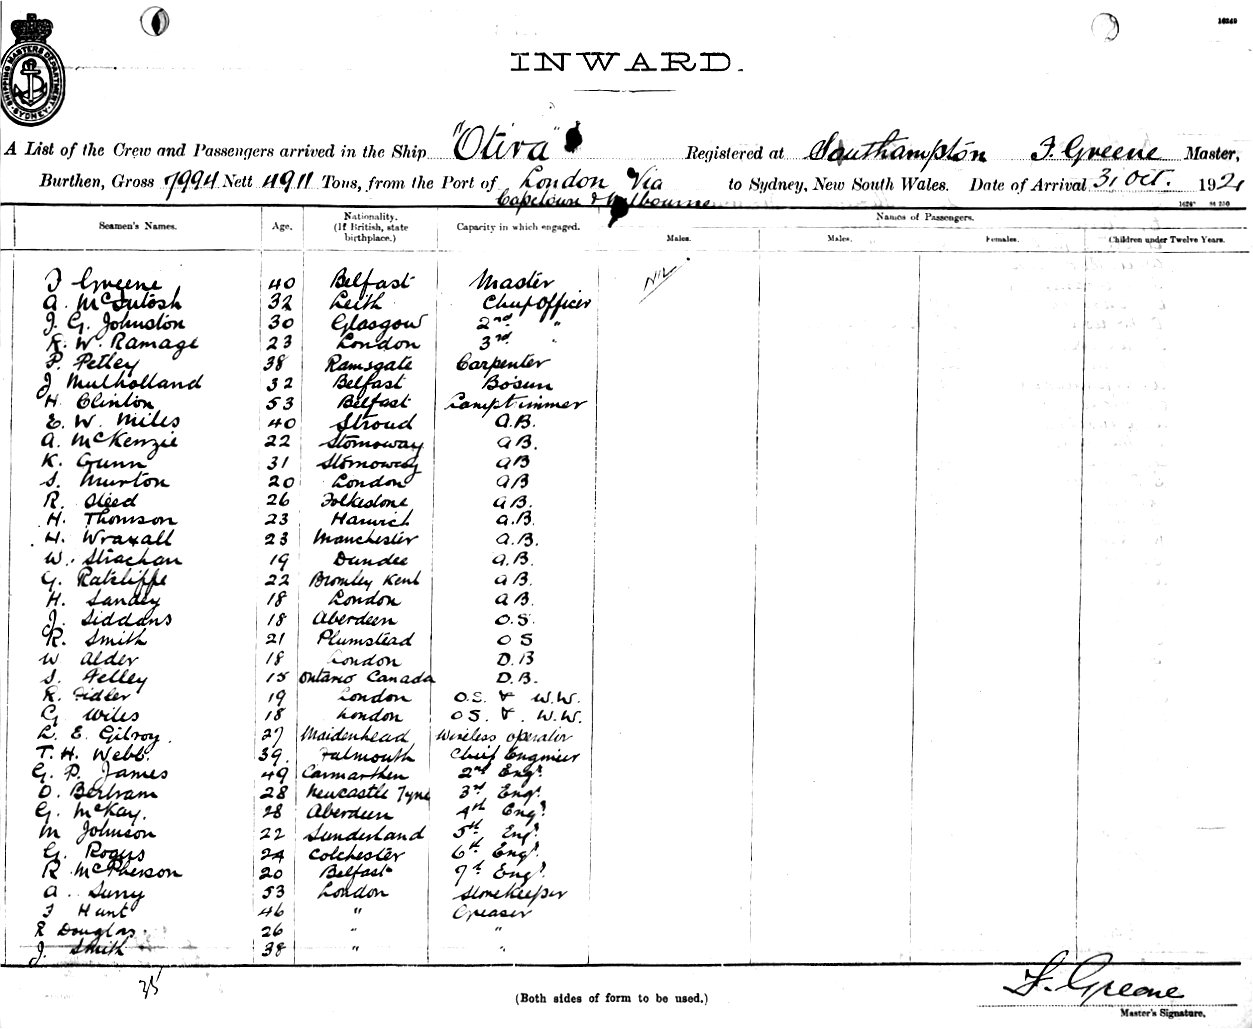 16249
INWARD.
SHIPPING MASTERS DEPARTMENT SYDNEY
A List of the Crew and Passengers arrived in the Ship "Otira" Registered at Southampton F. Greene Master,
Burthen, Gross 7994 Nett 4911 Tons, from the Port of London Via to Sydney, New South Wales. Date of Arrival 31 Oct. 1921
Capetown & Melbourne
Seamen's Names. Age. Nationality. (If British, state birthplace.) Capacity in which engaged. Names of Passengers.
Males. Males. Females. Children under Twelve Years.
F Greene 40 Belfast Master Nil
A. McIntosh 32 Leith Chief Officer
J. G. Johnston 30 Glasgow 2nd "
K. W. Ramage 23 London 3rd "
P. Petley 38 Ramsgate Carpenter
J Mulholland 32 Belfast Bosun
H. Clinton 53 Belfast Lamptrimmer
E. W. Miles 40 Stroud A.B.
A. McKenzie 22 Stornoway A.B.
K. Gunn 31 Stornoway A B
S. Murton 20 London A B
R. Sleed 26 Folkestone A B.
H. Thomson 23 Harwich A.B.
H. Wraxall 23 Manchester A.B.
W. Strachan 19 Dundee A.B.
G. Ratcliffe 22 Bromley Kent A B.
H. Sandey 18 London A B.
J. Siddans 18 Aberdeen O.S.
R. Smith 21 Plumstead O S
W Alder 18 London D.B
S. Felley 15 Ontario Canada D.B.
R. Fidler 19 London O.S. & W.W.
G Wiles 18 London O S. & W.W.
L. E. Gilroy. 27 Maidenhead Wireless operator
T. H. Webb. 39. Falmouth Chief Engineer
G. P. James 49 Carmarthen 2nd Engr.
D. Bertram 28 Newcastle Tyne 3rd Engr.
G. McKay. 28 Aberdeen 4th Engr.
M Johnson 22 Sunderland 5th Engr.
G. Rogers 24 Colchester 6th Engr.
R McPherson 20 Belfast 7th Engr.
A. Surry 53 London Storekeeper
F Hunt 46 " Greaser
R Douglas. 26 " "
J. Smith 38 " "
35
F. Greene
(Both sides of form to be used.)
Master's Signature.